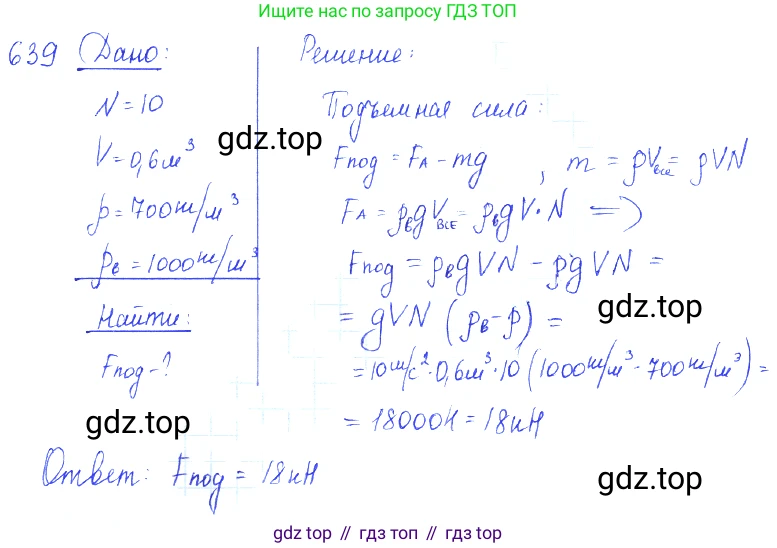 Ищите нас по запросу ГДЗ ТОП
639 Дано:
N = 10
V = 0,6 м³
ρ = 700 кг/м³
ρв = 1000 кг/м³
Найти:
Fпод - ?
Решение:
Подъемная сила:
Fпод = FА - mg , m = ρVвсе = ρVN
FА = ρвgVвсе = ρвgV·N =>
Fпод = ρвgVN - ρgVN =
= gVN (ρв - ρ) =
= 10 м/с² · 0,6 м³ · 10 (1000 кг/м³ - 700 кг/м³) =
= 18000 Н = 18 кН
Ответ: Fпод = 18 кН
gdz.top
gdz.top
gdz.top
gdz.top
gdz.top // гдз топ // gdz.top